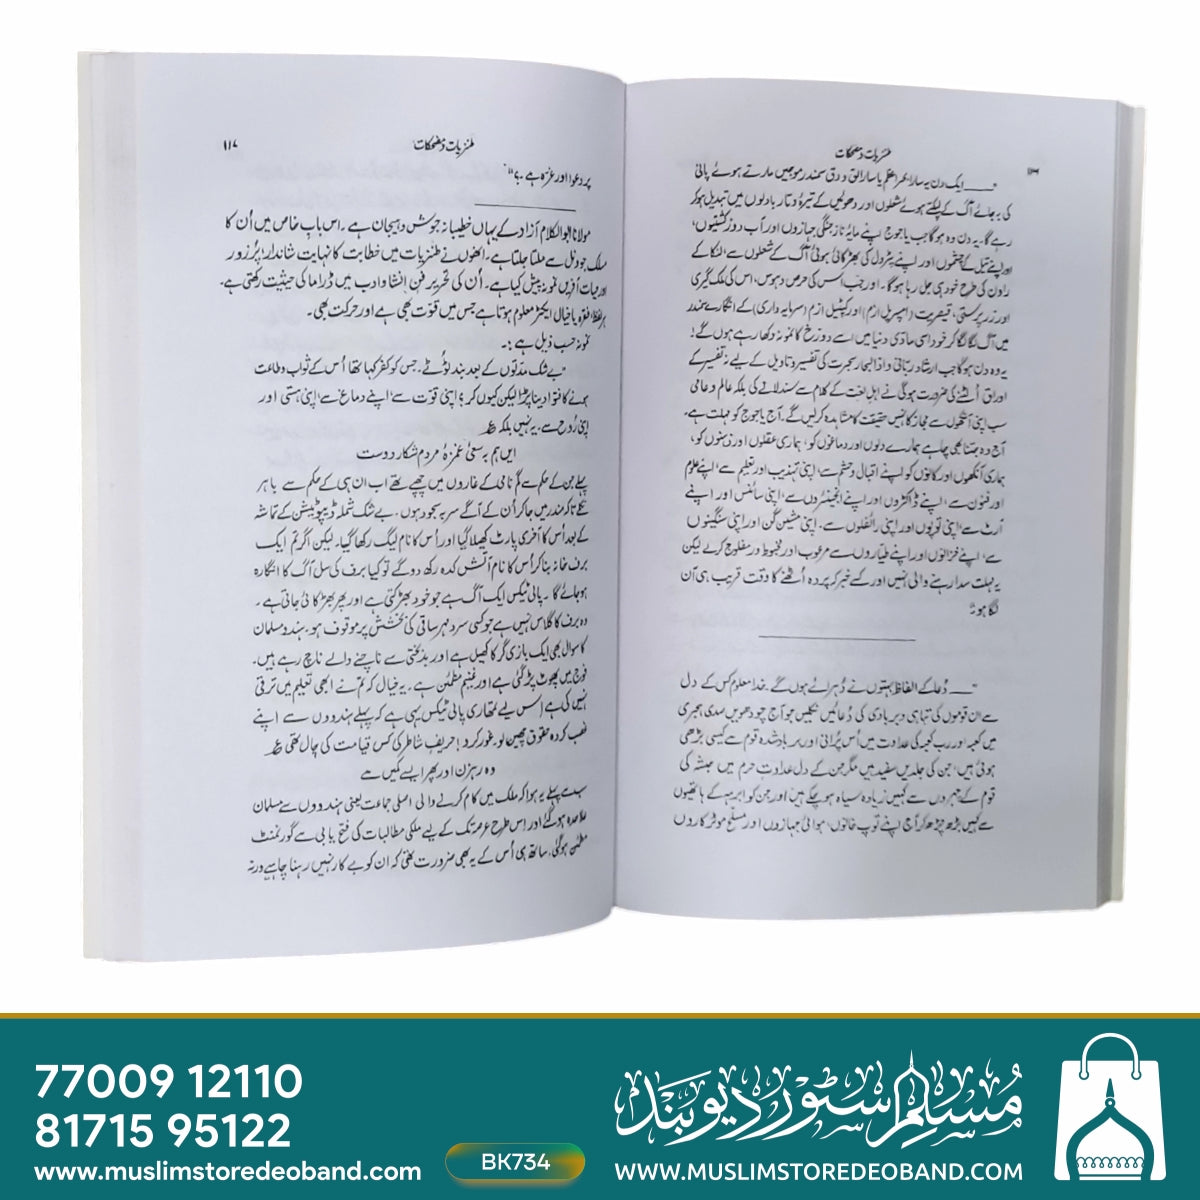 طنزیات و مضحکات
ــــــ ایک دن یہ سارا بحر اعظم یا سارا لق و دق سمندر موجیں مارتے ہوئے پانی
کی بہ جائے آگ کے لپکتے ہوئے شعلوں اور دھوئیں کے تیرہ و تار بادلوں میں تبدیل ہو کر
رہے گا۔ یہ دن وہ ہوگا جب یاجوج اپنے مایۂ ناز جنگی جہازوں اور آب دوز کشتیوں،
اور اپنے تیل کے چشموں اور اپنے پٹرول کی بھڑکائی ہوئی آگ کے شعلوں سے، لنکا کے
راون کی طرح خود ہی جل رہا ہوگا۔ اور جب اس کی حرص و ہوس، اس کی ملک گیری
اور زر پرستی، قیصریت (امپیریل ازم) اور کیپٹیل ازم (سرمایہ داری) کے انگارے سمندر
میں آگ لگا لگا کر خود اسی مادّی دنیا میں اسے دوزخ کا نمونہ دکھا رہے ہوں گے!
یہ وہ دن ہوگا جب ارشاد ربانی واذا البحار سجرت کی تفسیر و تاویل کے لیے نہ تفسیر کے
اوراق اُلٹنے کی ضرورت ہوگی نہ اہلِ لغت کے کلام سے سند لانے کی بلکہ عالم و عامی
سب اپنی آنکھوں سے مجاز کا نہیں حقیقت کا مشاہدہ کرلیں گے۔ آج یاجوج کو مہلت ہے۔
آج وہ جتنا بھی چاہے ہمارے دلوں اور دماغوں کو، ہماری عقلوں اور ذہنوں کو،
ہماری آنکھوں اور کانوں کو اپنے اقبال و حشم سے، اپنی تہذیب اور تعلیم سے، اپنے علوم
اور فنون سے، اپنے ڈاکٹروں اور اپنے انجینیروں سے، اپنی سائنس اور اپنے
آرٹ سے، اپنی توپوں اور اپنی رائفلوں سے۔ اپنی مشین گن اور اپنی سنگینوں
سے، اپنے خزانوں اور اپنے طیّاروں سے مرعوب اور مخبوط و مفلوج کرلے لیکن
یہ مہلت سدا رہنے والی نہیں اور کسے خبر کہ پردہ اُٹھنے کا وقت قریب ہی آن
لگا ہو۔"
"ــــــ دُعا کے الفاظ بہتوں نے دُہرائے ہوں گے۔ خدا معلوم کس کے دل
سے ان قوموں کی تباہی و بربادی کی دُعائیں نکلیں جو آج چودھویں صدی ہجری
میں کعبہ اور رب کعبہ کی عداوت میں اُس پُرانی اور برباد شدہ قوم سے کہیں بڑھی
ہوئی ہیں، جن کی جلدیں سفید ہیں مگر جن کے دل عداوتِ حرم میں حبشہ کی
قوم کے چہروں سے کہیں زیادہ سیاہ ہو چکے ہیں اور جن کو ابرہہ کے ہاتھیوں
سے کہیں بڑھ چڑھ کر آج اپنے توپ خانوں، ہوائی جہازوں اور مسلّح موٹر کاروں
طنزیات و مضحکات ۱۱۷
پر دعوا اور غرّہ ہے ۔؟"
مولانا ابوالکلام آزاد کے یہاں خطیبانہ جوش و ہیجان ہے۔ اس باب خاص میں اُن کا
مسلک جو ول سے ملتا جلتا ہے۔ انھوں نے طنزیات میں خطابت کا نہایت شاندار، پُر زور
اور حیات آفریں نمونہ پیش کیا ہے۔ اُن کی تحریر فنِ انشا و ادب میں ڈراما کی حیثیت رکھتی ہے۔
ہر لفظ، فقرہ یا خیال ایکٹر معلوم ہوتا ہے جس میں قوّت بھی ہے اور حرکت بھی۔
نمونہ حسب ذیل ہے :۔
"بے شک مدّتوں کے بعد بند ٹوٹے۔ جس کو کفر کہا تھا اُس کے ثواب و طاعت
ہونے کا فتوا دینا پڑا لیکن کیوں کر؟ اپنی قوّت سے، اپنے دماغ سے، اپنی ہستی اور
اپنی رُوح سے، یہ نہیں بلکہ ؏
ایں ہم بہ سعئ غمزۂ مردم شکار دوست
پہلے جن کے حکم سے گم نامی کے غاروں میں چھپے تھے اب ان ہی کے حکم سے باہر
نکلے تاکہ مندر میں جاکر اُن کے آگے سر بہ سجود ہوں۔ بے شک شملہ ڈیپوٹیشن کے تماشہ
کے بعد اُس کا آخری پارٹ کھیلا گیا اور اُس کا نام لیگ رکھا گیا۔ لیکن اگر تم ایک
برف خانہ بنا کر اُس کا نام آتش کدہ رکھ دوگے تو کیا برف کی سل آگ کا انگارہ
ہو جائے گا۔ پالی ٹیکس ایک آگ ہے جو خود بھڑکتی ہے اور پھر بھڑکائی جاتی ہے۔
وہ برف کا گلاس نہیں ہے جو کسی سرد مہر ساقی کی بخشش پر موقوف ہو۔ ہندو مسلمان
کا سوال بھی ایک بازی گر کا کھیل ہے اور بدبختی سے ناچنے والے ناچ رہے ہیں۔
فوج میں پھوٹ پڑ گئی ہے اور غنیم مطمئن ہے۔ یہ خیال کہ تم نے ابھی تعلیم میں ترقی
نہیں کی ہے اس لیے تمھاری پالی ٹیکس یہی ہے کہ پہلے ہندوؤں سے اپنے
غصب کردہ حقوق چھین لو۔ غور کرو! حریف شاطر کی کس قیامت کی چال تھی ؏
وہ رہزن اور پھر ایسے کہیں سے
سب سے پہلے یہ ہوا کہ ملک میں کام کرنے والی اصلی جماعت یعنی ہندوؤں سے مسلمان
علاحدہ ہوگئے اور اس طرح عرصہ تک کے لیے ملکی مطالبات کی فتح یابی سے گورنمنٹ
مطمئن ہوگئی۔ ساتھ ہی اُس کے یہ بھی ضرورت تھی کہ ان کو بے کار نہیں رہنا چاہیے ورنہ
77009 12110
81715 95122
www.muslimstoredeoband.com
BK734
مُسلم سٹور دیوبند
WWW.MUSLIMSTOREDEOBAND.COM